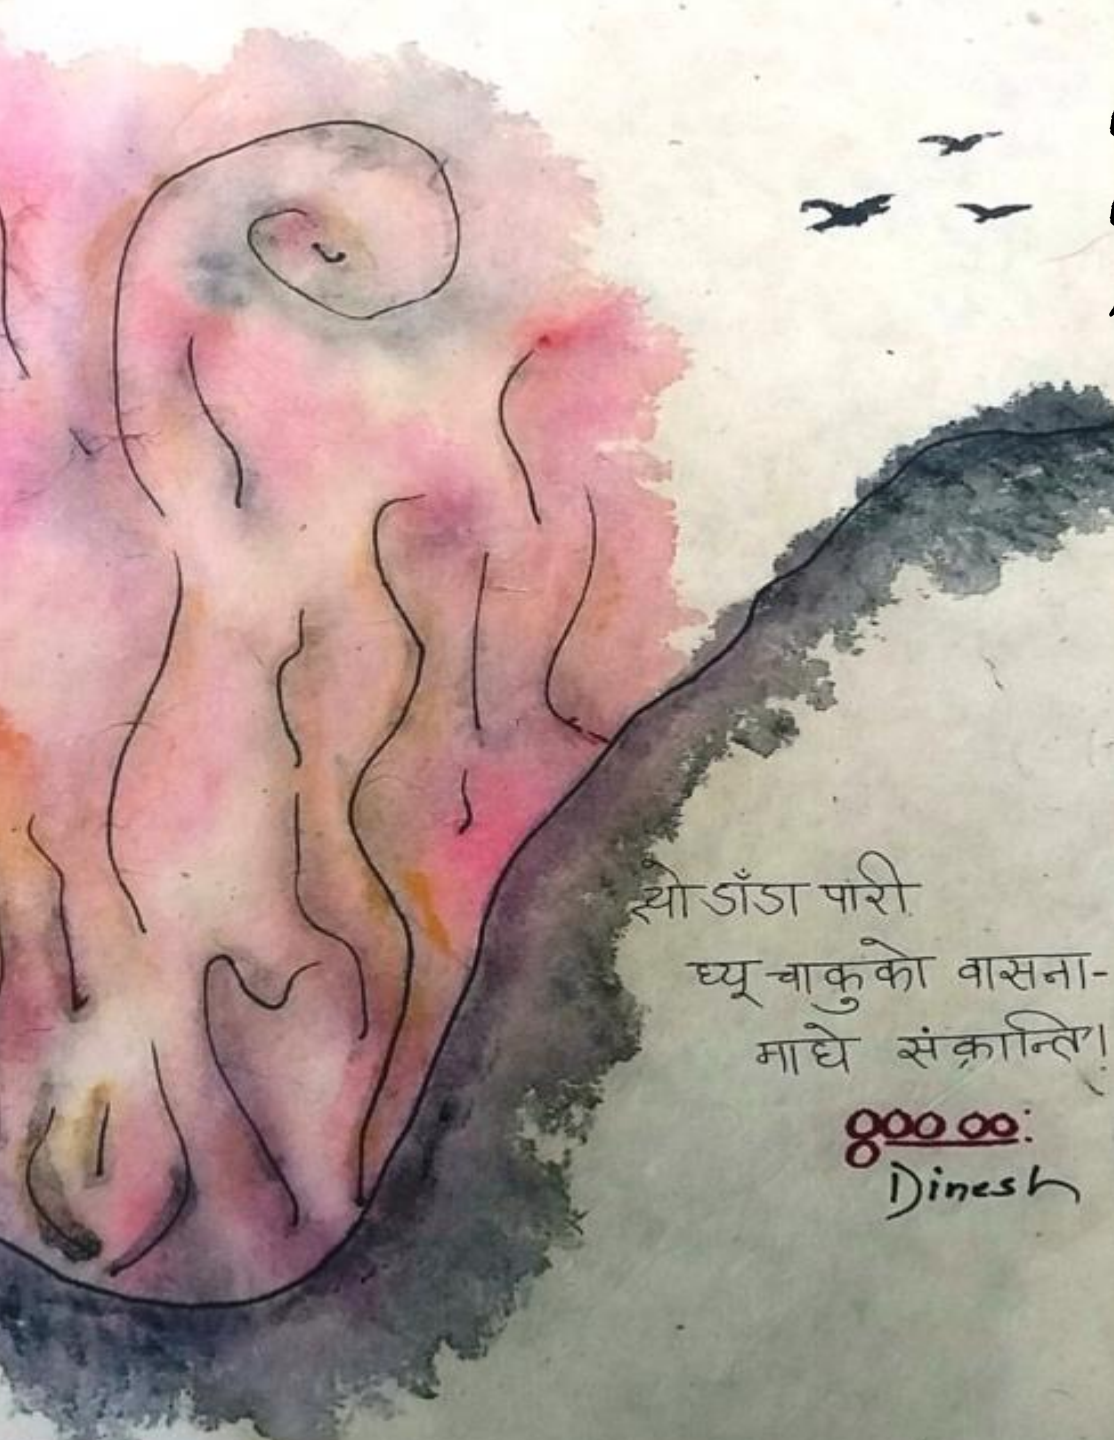 त्यो डाँडा पारी
घ्यू चाकुको वासना-
माघे संक्रान्ति!
Dinesh